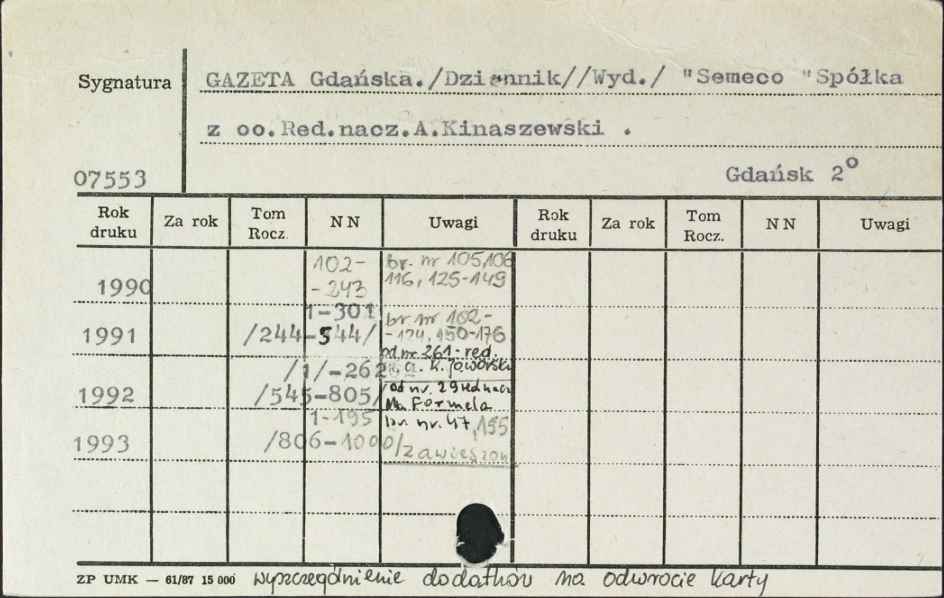 Sygnatura
GAZETA Gdańska./Dziennik//Wyd./ "Semeco "Spółka
z oo.Red.nacz.A.Kinaszewski .
07553
Gdańsk 2°
Rok druku Za rok Tom Rocz. NN Uwagi Rok druku Za rok Tom Rocz. NN Uwagi
102- br. nr 105,106
1990 -243 116, 125-149
1-301 br nr 102-
1991 /244-544/ -124, 150-176
od nr 261-red.
/1/-262 n. a. K. Jaworski
1992 /545-805/ /od nr. 29 red nacz
M. Formela
1-195 br. nr. 47, 155
1993 /806-1000/ zawieszon
ZP UMK — 61/87 15 000 wyszczególnienie dodatków na odwrocie karty